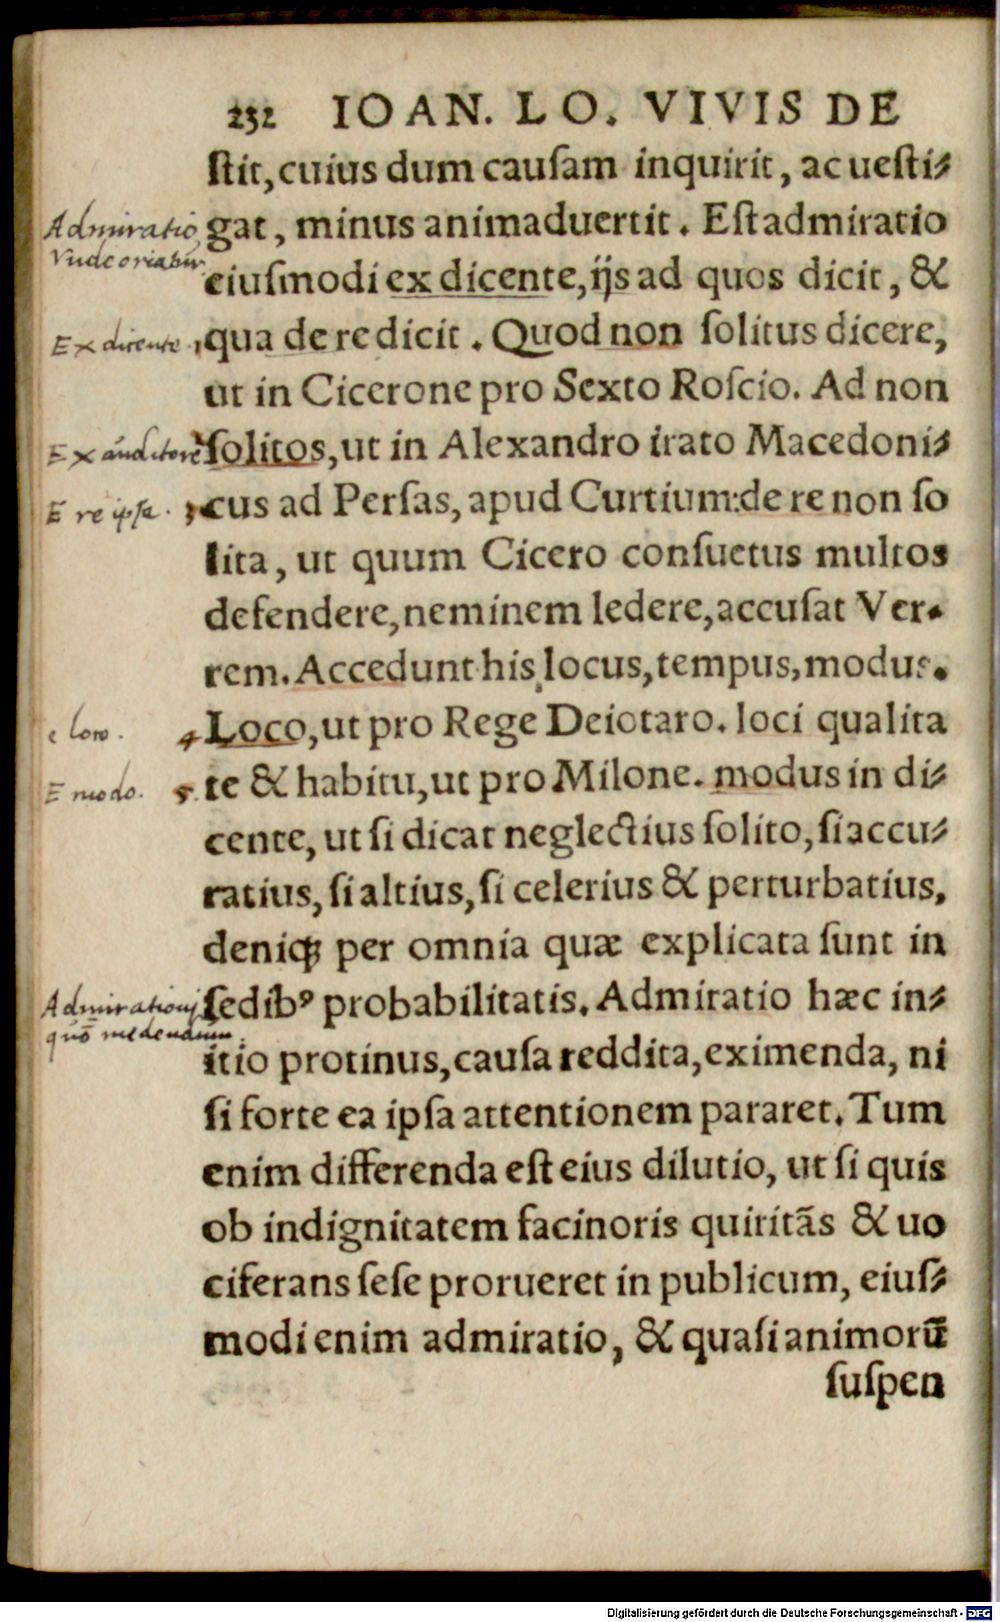 232 IOAN. LO. VIVIS DE
ſtit, cuius dum cauſam inquirit, ac ueſti⸗
Admiratio
gat, minus animaduertit. Eſt admiratio
Vnde oriatur
eiuſmodi ex dicente, ijs ad quos dicit, &
Ex dicente. 1
qua de re dicit. Quod non ſolitus dicere,
ut in Cicerone pro Sexto Roſcio. Ad non
Ex auditore
ſolitos, ut in Alexandro irato Macedoni⸗
E re ipſa. 3
cus ad Perſas, apud Curtium: de re non ſo
lita, ut quum Cicero conſuetus multos
defendere, neminem ledere, accuſat Ver.
rem. Accedunt his locus, tempus, modus.
e loco. 4
Loco, ut pro Rege Deiotaro. loci qualita
E modo. 5.
te & habitu, ut pro Milone. modus in di⸗
cente, ut ſi dicat neglectius ſolito, ſi accu⸗
ratius, ſi altius, ſi celerius & perturbatius,
deniqꝫ per omnia quæ explicata ſunt in
Admirationi
ſedibꝰ probabilitatis. Admiratio hæc in⸗
quō medendum.
itio protinus, cauſa reddita, eximenda, ni
ſi forte ea ipſa attentionem pararet. Tum
enim differenda eſt eius dilutio, ut ſi quis
ob indignitatem facinoris quiritãs & uo
ciferans ſeſe prorueret in publicum, eiuſ⸗
modi enim admiratio, & quaſi animorũ
ſuſpen
Digitalisierung gefördert durch die Deutsche Forschungsgemeinschaft - DFG